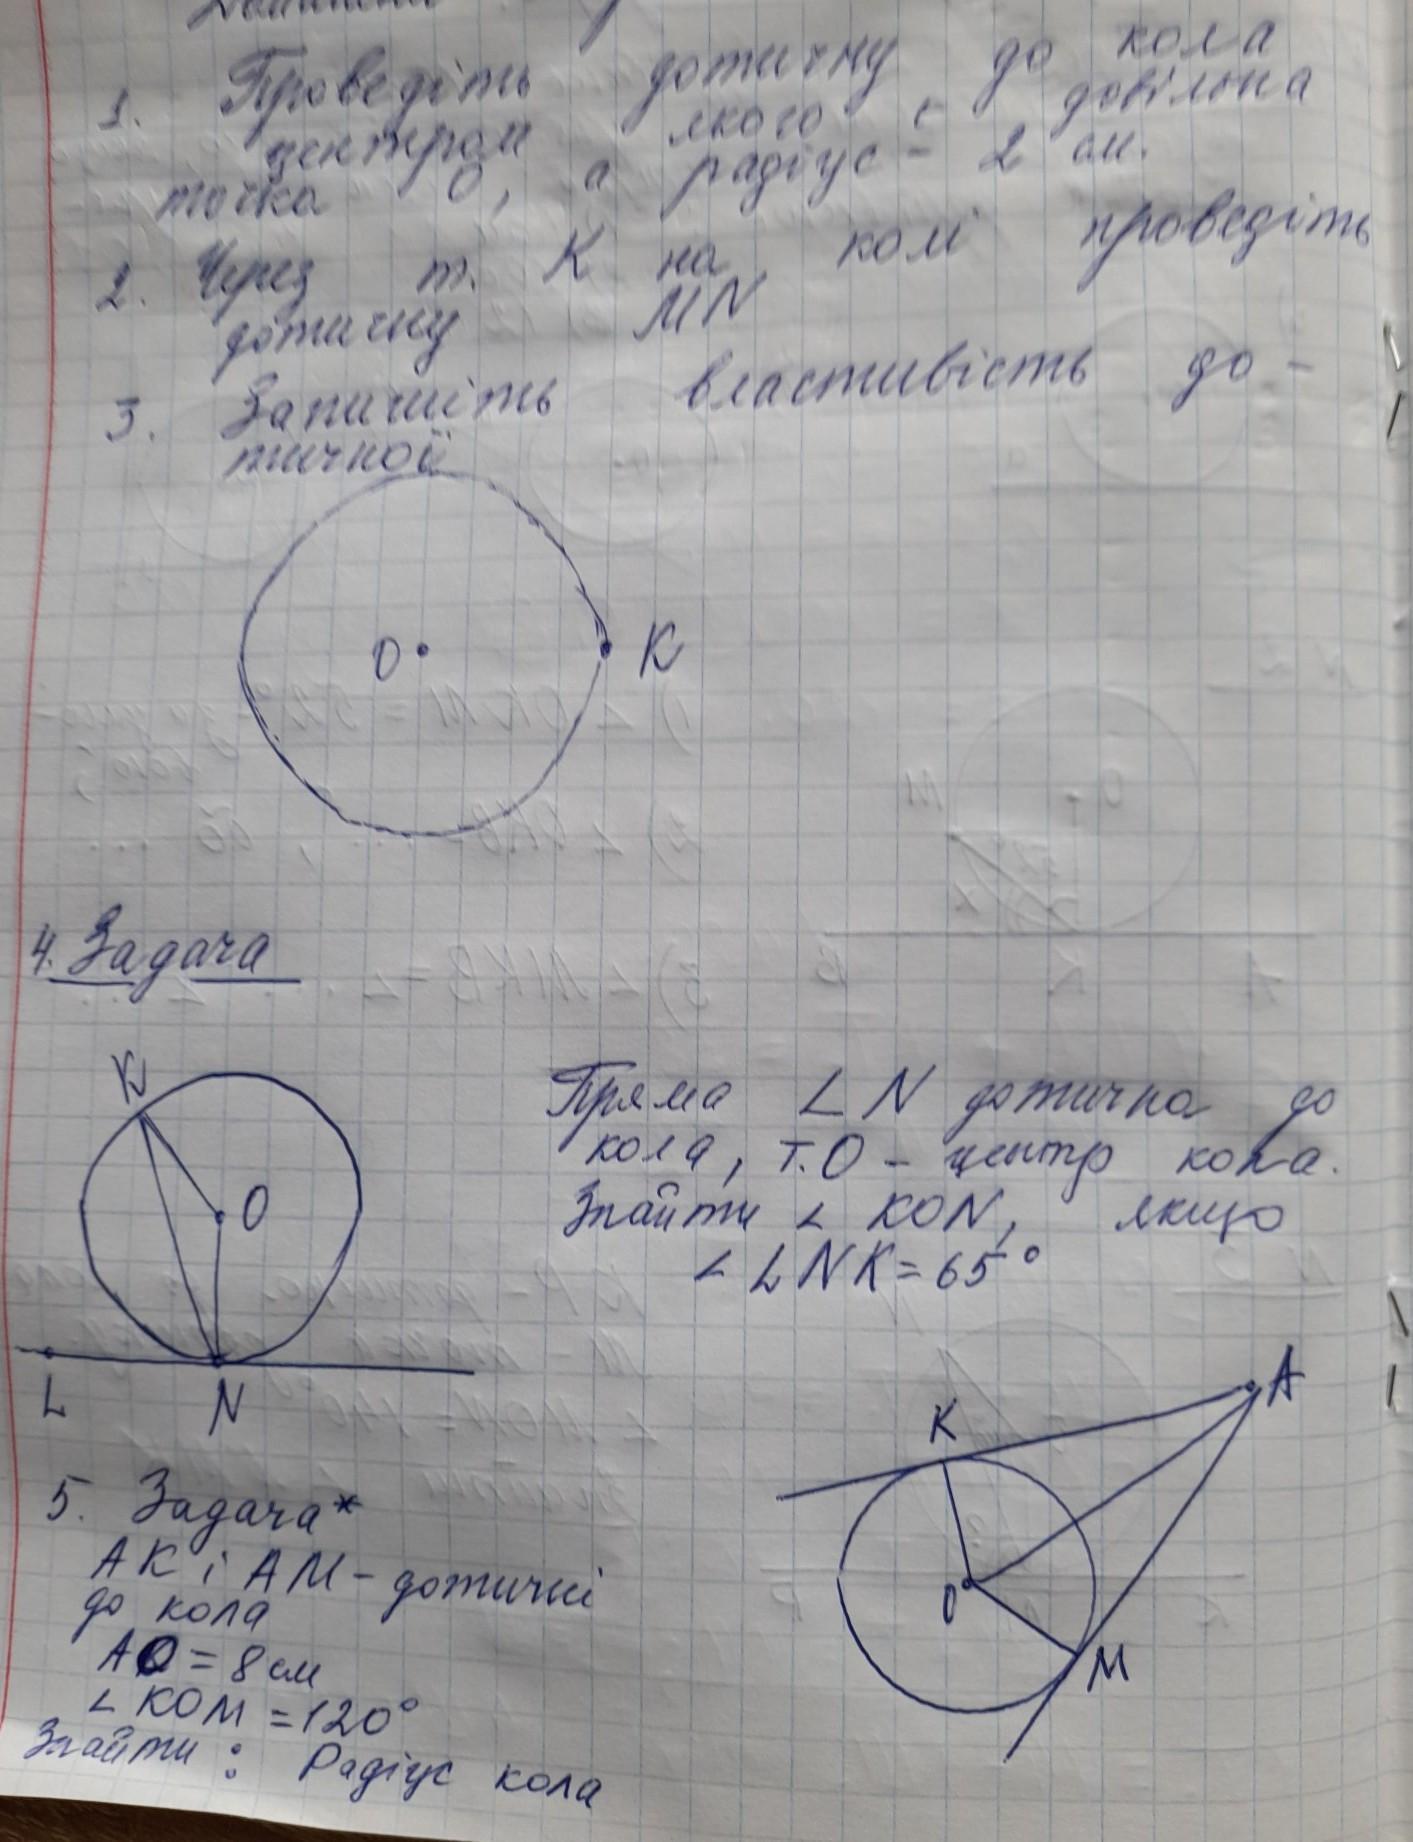 1. Проведіть дотичну до кола
центром якого є довільна
точка О, а радіус - 2 см.
2. Через т. К на колі проведіть
дотичну MN
3. Запишіть властивість до-
тичної
О К
4. Задача
К
О
L N
Пряма LN дотична до
кола, т.О - центр кола.
Знайти ∠ KON, якщо
∠ LNK = 65°
5. Задача*
АК і АМ - дотичні
до кола
АО = 8 см
∠ КОМ = 120°
Знайти: Радіус кола
К
А
О
М